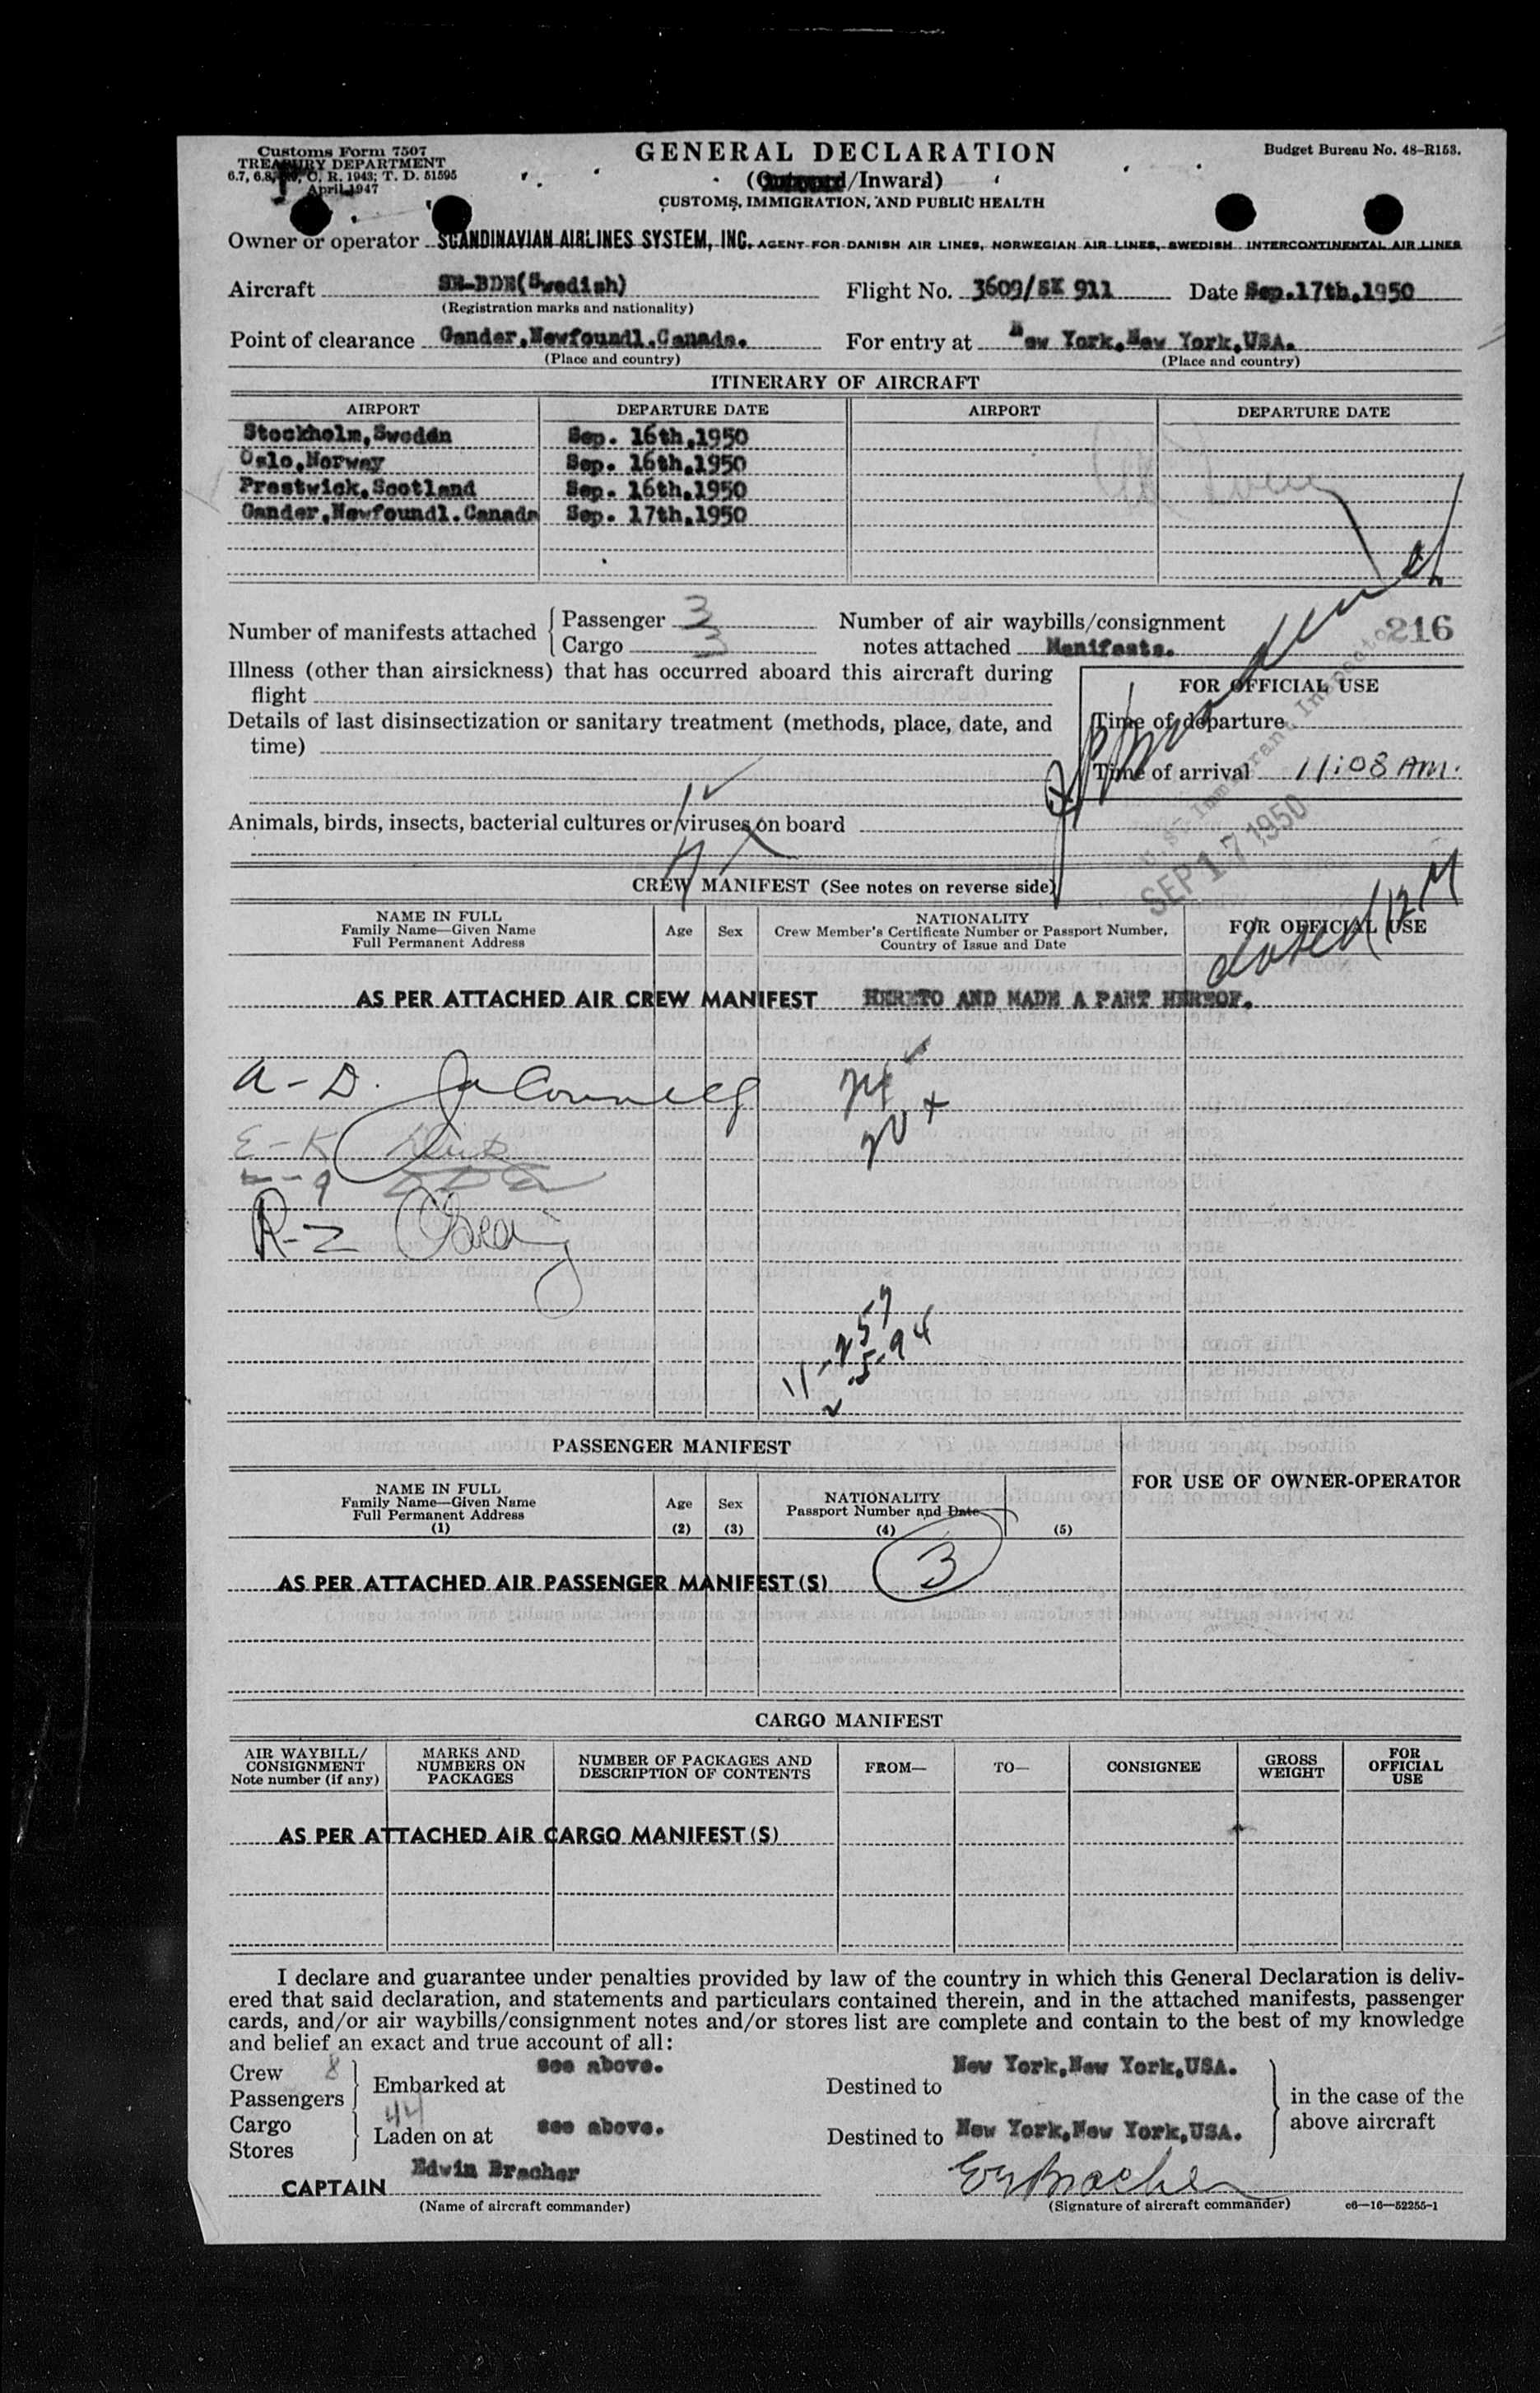 Customs Form 7507
TREASURY DEPARTMENT
6.7, 6.8, C. R. 1943; T. D. 51595
April 1947
GENERAL DECLARATION
(Outward/Inward)
CUSTOMS, IMMIGRATION, AND PUBLIC HEALTH
Budget Bureau No. 48-R153.
Owner or operator SCANDINAVIAN AIRLINES SYSTEM, INC. AGENT FOR DANISH AIR LINES, NORWEGIAN AIR LINES, SWEDISH INTERCONTINENTAL AIR LINES
Aircraft SE-BDE(Swedish) Flight No. 3609/SK 911 Date Sep.17th,1950
(Registration marks and nationality)
Point of clearance Gander,Newfoundl.Canada. For entry at New York,New York,USA.
(Place and country) (Place and country)
ITINERARY OF AIRCRAFT
AIRPORT DEPARTURE DATE AIRPORT DEPARTURE DATE
Stockholm,Sweden Sep. 16th,1950
Oslo,Norway Sep. 16th,1950
Prestwick,Scotland Sep. 16th,1950
Gander,Newfoundl.Canada Sep. 17th,1950
Number of manifests attached Passenger 3
Cargo 3
Number of air waybills/consignment
notes attached Manifests.
216
Illness (other than airsickness) that has occurred aboard this aircraft during
flight
Details of last disinsectization or sanitary treatment (methods, place, date, and
time)
FOR OFFICIAL USE
Time of departure
Time of arrival 11:08 AM.
U. S. Immigrant Inspector
SEP 17 1950
Animals, birds, insects, bacterial cultures or viruses on board
CREW MANIFEST (See notes on reverse side)
NAME IN FULL
Family Name—Given Name
Full Permanent Address
Age Sex
NATIONALITY
Crew Member's Certificate Number or Passport Number,
Country of Issue and Date
FOR OFFICIAL USE
AS PER ATTACHED AIR CREW MANIFEST HERETO AND MADE A PART HEREOF.
A - D.
E - K
R - Z
PASSENGER MANIFEST
FOR USE OF OWNER-OPERATOR
NAME IN FULL
Family Name—Given Name
Full Permanent Address
(1)
Age
(2)
Sex
(3)
NATIONALITY
Passport Number and Date
(4)
(5)
AS PER ATTACHED AIR PASSENGER MANIFEST(S) 3
CARGO MANIFEST
AIR WAYBILL/
CONSIGNMENT
Note number (if any)
MARKS AND
NUMBERS ON
PACKAGES
NUMBER OF PACKAGES AND
DESCRIPTION OF CONTENTS
FROM—
TO—
CONSIGNEE
GROSS
WEIGHT
FOR
OFFICIAL
USE
AS PER ATTACHED AIR CARGO MANIFEST(S)
I declare and guarantee under penalties provided by law of the country in which this General Declaration is deliv-
ered that said declaration, and statements and particulars contained therein, and in the attached manifests, passenger
cards, and/or air waybills/consignment notes and/or stores list are complete and contain to the best of my knowledge
and belief an exact and true account of all:
Crew 8
Passengers 44
Embarked at see above. Destined to New York,New York,USA.
Cargo
Stores
Laden on at see above. Destined to New York,New York,USA.
in the case of the
above aircraft
CAPTAIN Edwin Bracher
(Name of aircraft commander) (Signature of aircraft commander) c6—16—52255-1